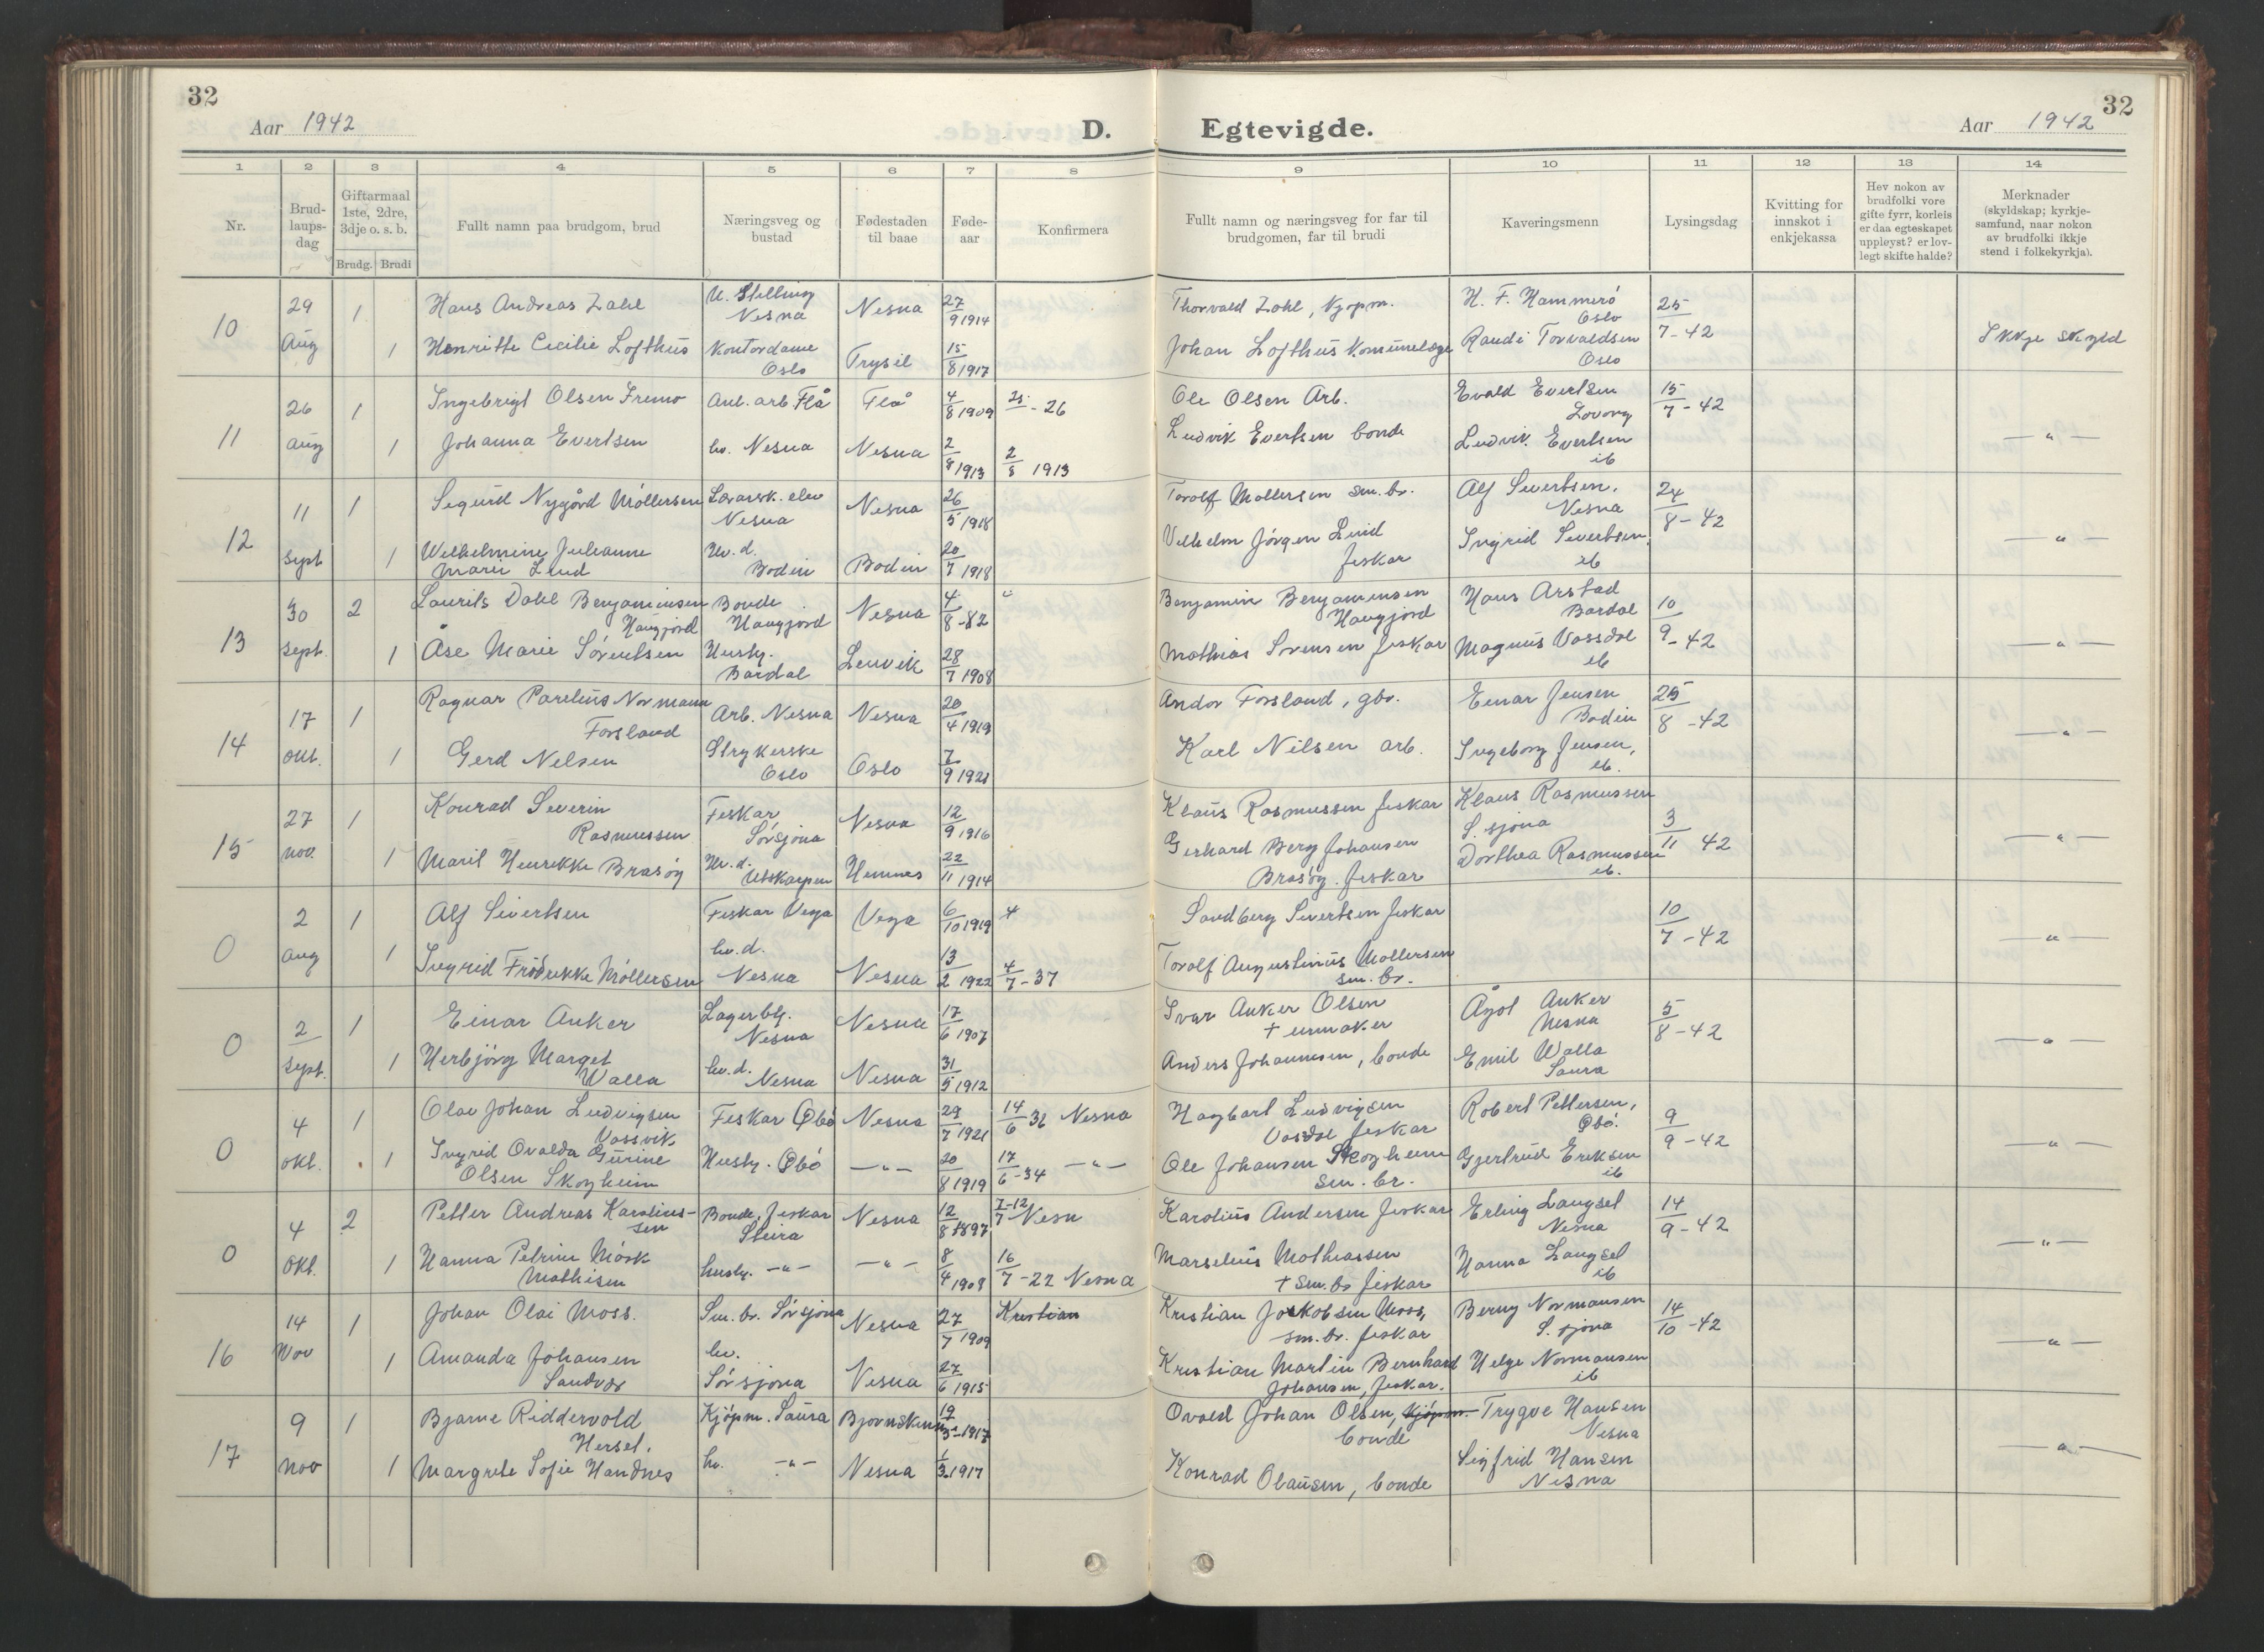 32
Aar 1942
D.
Egtevigde.
Aar 1942
32
1 2 3 4 5 6 7 8 9 10 11 12 13 14
Nr.
Brud-
laups-
dag
Giftarmaal
1ste, 2dre,
3dje o. s. b.
Brudg. Brudi
Fullt namn paa brudgom, brud
Næringsveg og
bustad
Fødestaden
til baae
Føde-
aar
Konfirmera
Fullt namn og næringsveg for far til
brudgomen, far til brudi
Kaveringsmenn
Lysingsdag
Kvitting for
innskot i
enkjekassa
Hev nokon av
brudfolki vore
gifte fyrr, korleis
er daa egteskapet
uppløyst? er lov-
legt skifte halde?
Merknader
(skyldskap; kyrkje-
samfund, naar nokon
av brudfolki ikkje
stend i folkekyrkja).
10
29 Aug 1 Hans Andreas Zahl Nesna Nesna 27/9 1914 Thorvald Zahl, kjøpm. H. F. Hammerö Oslo 25/7-42
1 Henritte Cecilie Lofthus Kontordame Oslo Trysil 15/8 1917 Johan Lofthus Komunelæge Randi Torvaldsen Oslo Ikkje skyld
11
26 Aug 1 Ingebrigt Olsen Fremo Anl. arb Flå Flå 4/8 1909 Ole Olsen Arb. Evald Evertsen 15/7-42
1 Johanna Evertsen hv. Nesna Nesna 2/8 1913 2/8 1913 Ludvik Evertsen bonde Ludvik Evertsen ib -"-
12
11 Sept 1 Sigurd Nygård Möllersen Lærarsk. elev Nesna Nesna 26/5 1918 Torolf Mollersen sm. br. Alf Sivertsen, Nesna 24/8-42
1 Wilhelmine Julianne Marie Lind Hv. d. Bodin Bodin 20/7 1918 Vilhelm Jörgen Lind fiskar Ingrid Sivertsen ib -"-
13
30 Sept. 2 Laurits Dahl Benjaminsen Haugjord Bonde Haugjord Nesna 4/8-82 Benjamin Benjaminsen Haugjord Hans Arstad Bardal 10/9-42
1 Åse Marie Sörentsen Husty. Bardal Lenvik 28/7 1908 Mathias Sörensen fiskar Magnus Vassdal ib -"-
14
17 okt. 1 Ragnar Parelius Normann Forsland Arb. Nesna Nesna 20/4 1919 Andor Forsland, gbr. Einar Jensen Bodin 25/8-42
1 Gerd Nelsen Strykerske Oslo Oslo 7/9 1921 Karl Nilsen arb. Ingeborg Jensen, ib. -"-
15
27 nov. 1 Konrad Severin Rasmussen Fiskar Sörsjona Nesna 12/9 1916 Klaus Rasmussen fiskar Klaus Rasmussen S. sjona 3/11 42
1 Marit Henrikke Brasöy Hv. d. Utskarpen Hemnes 22/11 1914 Gerhard Berg Johansen Brasöy. fiskar Dorthea Rasmussen ib. -"-
0
2 Aug 1 Alf Sivertsen Fiskar Vega Vega 6/10 1919 Sandberg Sivertsen fiskar 10/7-42
1 Ingrid Frödrikke Möllersen hv. d. Nesna Nesna 13/2 1922 4/7-37 Torolf Augustinus Mollersen sm. br. -"-
0
2 Sept. 1 Einar Anker Lagerbtj. Nesna Nesna 17/6 1907 Ivar Anker Olsen † urmaker Ågot Anker Nesna 5/8-42
1 Herbjörg Marget Walla hv. d. Nesna Nesna 31/5 1912 Anders Johannesen, bonde Emil Walla Saura -"-
0
4 okt. 1 Olav Johan Ludvigsen Vassvik Fiskar Øbö Nesna 29/7 1921 14/6 36 Nesna Hagbart Ludvigsen Vasdal fiskar Robert Pettersen, Øbö. 9/9-42
1 Ingrid Ovalda Gurine Olsen Skogheim Husty. Øbö -"- 20/8 1919 17/6-34 -"- Ole Johansen Skogheim sm. br. Gjertrud Eriksen ib -"-
0
4 okt. 2 Petter Andreas Karolius-sen Bonde, fiskar Steira Nesna 12/8 1897 7-12/7 Nesn Karolius Andersen fiskar Erling Langset Nesna 14/9-42
1 Hanna Petrine Mörk Mathisen husty. -"- -"- 8/4 1908 16/7-22 Nesna Marselius Mathiassen † Sm. br fiskar Hanna Langset ib -"-
16
14 Nov 1 Johan Olai Moss. Sm. br. Sörsjona Nesna 27/7 1909 Kristian Kristian Jakobsen Moss, sm. br. fiskar Berny Normansen S. sjona 14/10-42
1 Amanda Johansen Sandvær hv. Sörsjona Nesna 27/6 1915 Kristian Martin Bernhard Johansen, fiskar. Helge Normansen ib -"-
17
9 nov 1 Bjarne Riddervold Herset. Kjöpm. Saura 19/5-1917 Ovald Johan Olsen, kjöpm. bonde Trygve Hansen Nesna
1 Margrete Sofie Handnes hv. -"- Nesna 1/3 1917 Konrad Olausen, bonde Sigfrid Hansen Nesna -"-